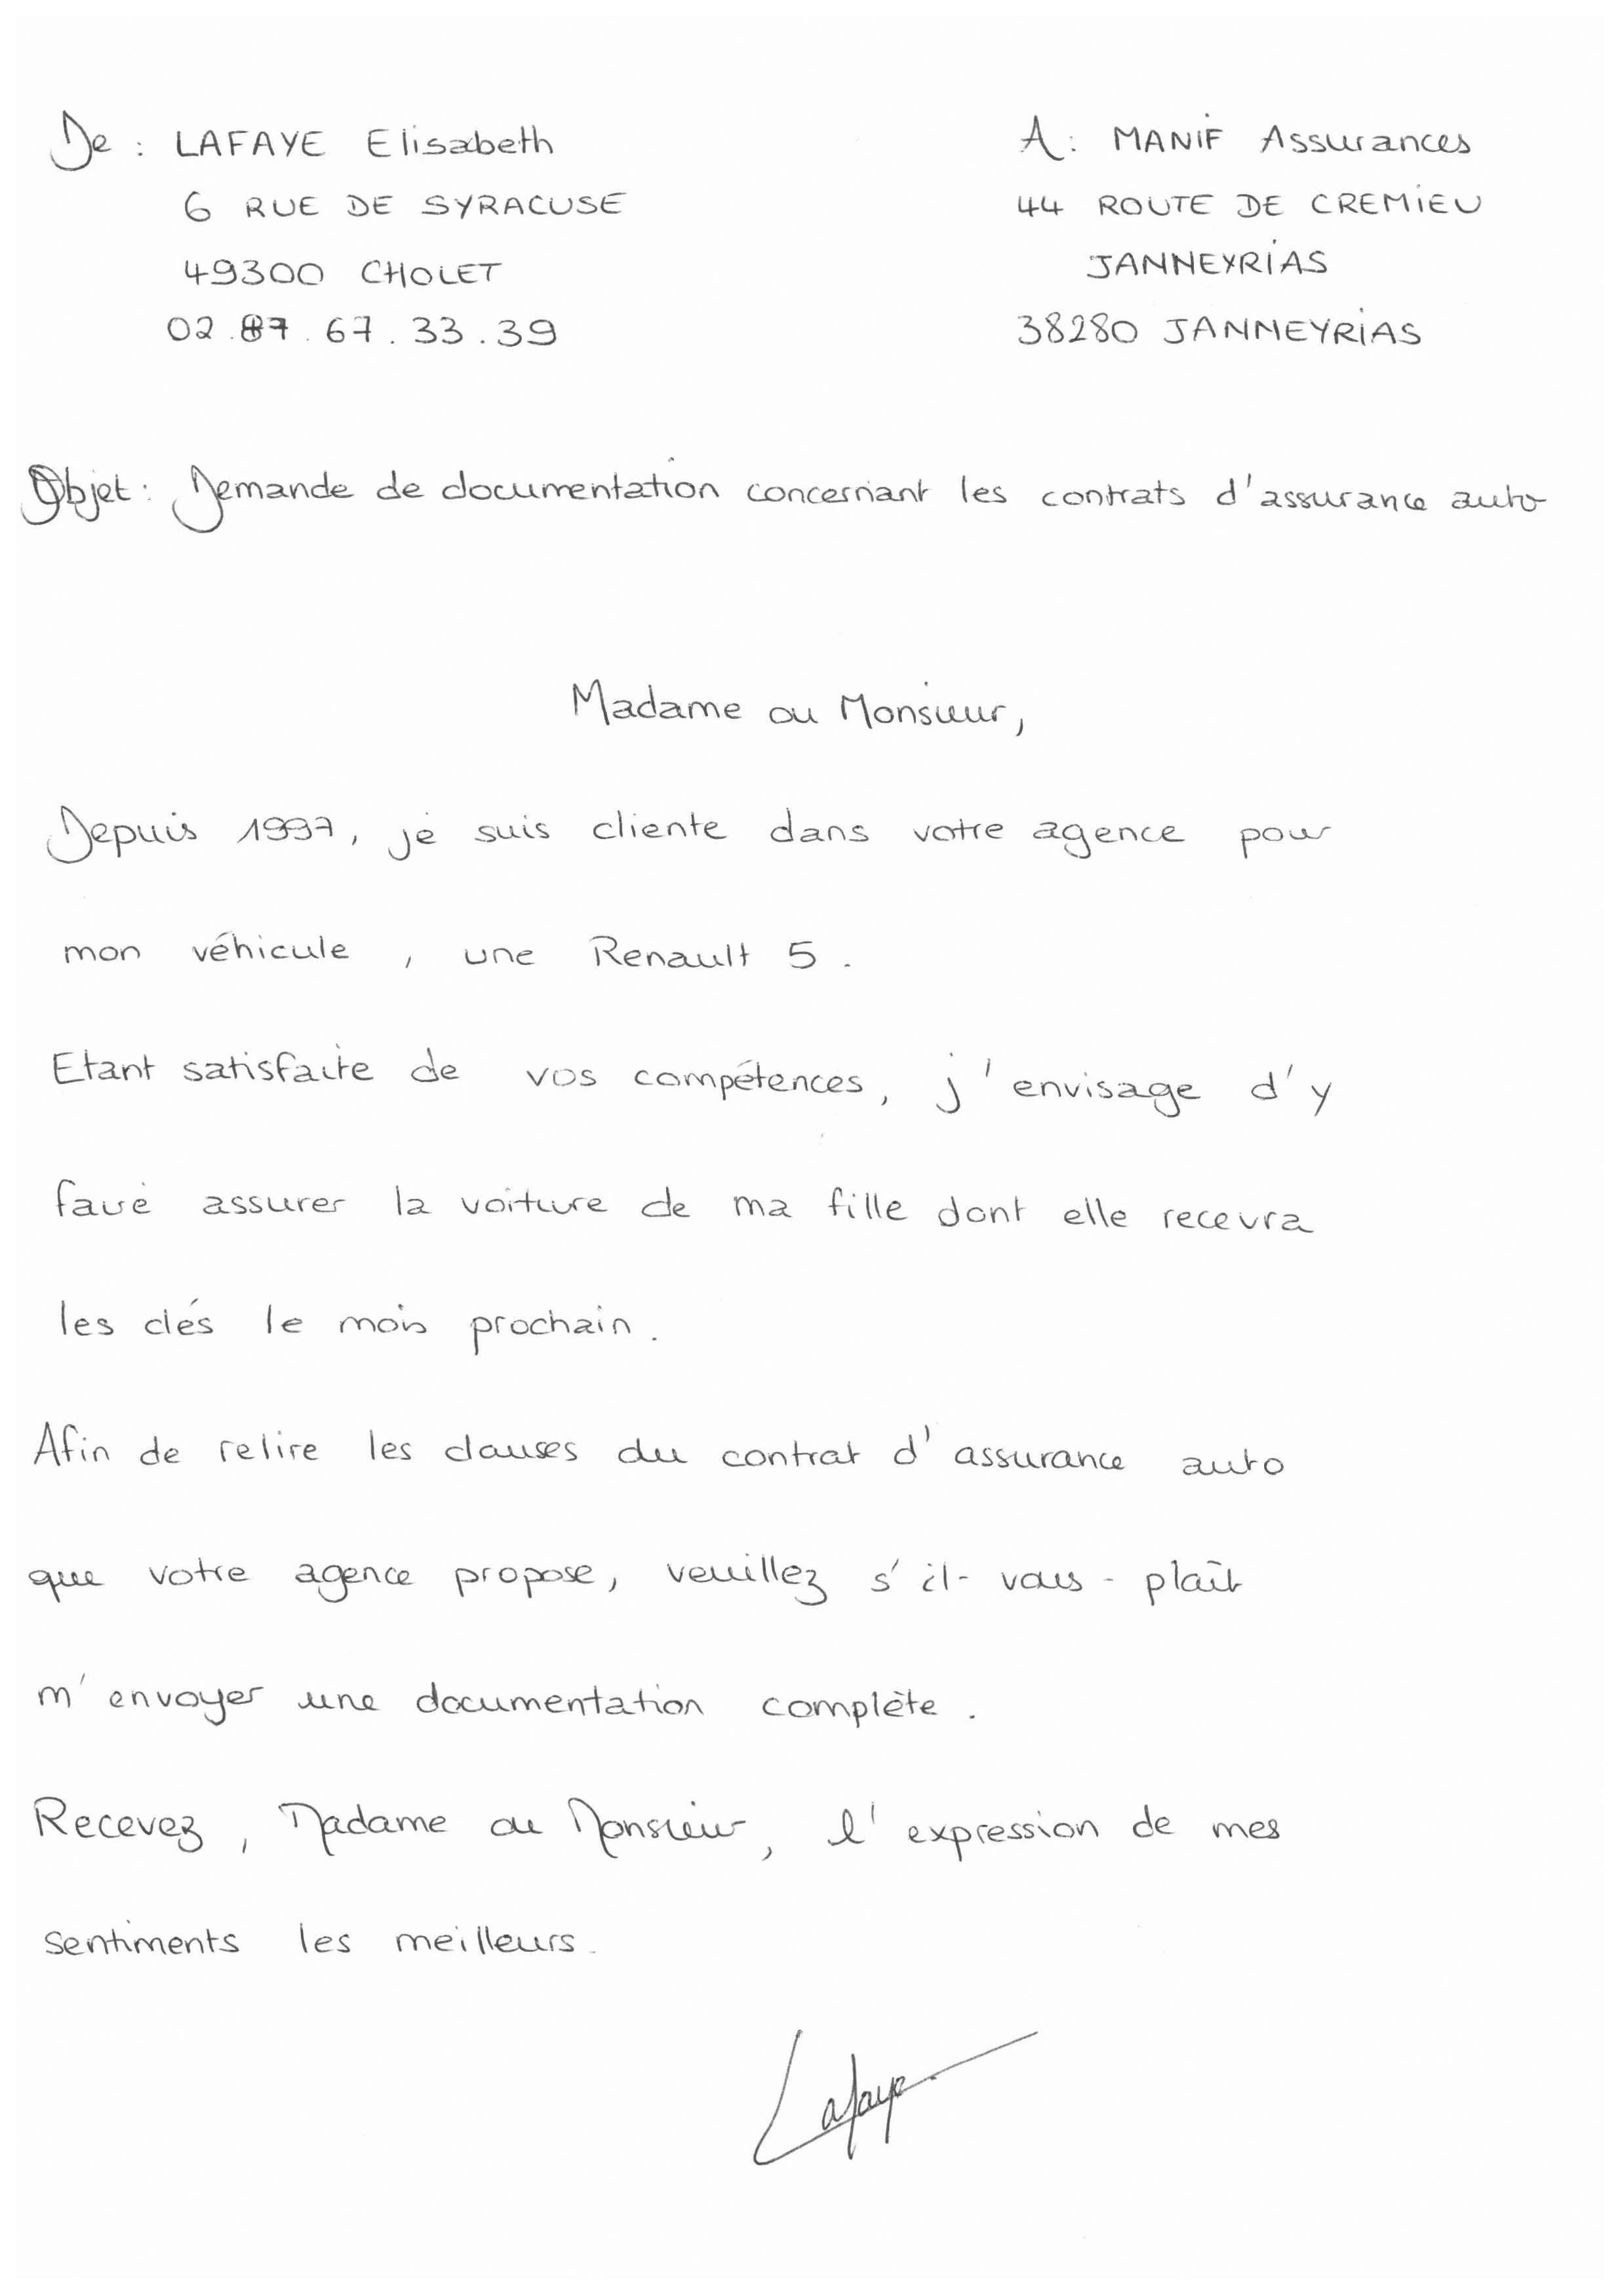 De : LAFAYE Elisabeth
6 RUE DE SYRACUSE
49300 CHOLET
02.87.67.33.39
A : MANIF Assurances
44 ROUTE DE CREMIEU
JANNEYRIAS
38280 JANNEYRIAS
Objet : Demande de documentation concernant les contrats d'assurance auto
Madame ou Monsieur,
Depuis 1997, je suis cliente dans votre agence pour
mon véhicule, une Renault 5.
Etant satisfaite de vos compétences, j'envisage d'y
faire assurer la voiture de ma fille dont elle recevra
les clés le mois prochain.
Afin de relire les clauses du contrat d'assurance auto
que votre agence propose, veuillez s'il-vous-plaît
m'envoyer une documentation complète.
Recevez, Madame ou Monsieur, l'expression de mes
sentiments les meilleurs.
Lafaye